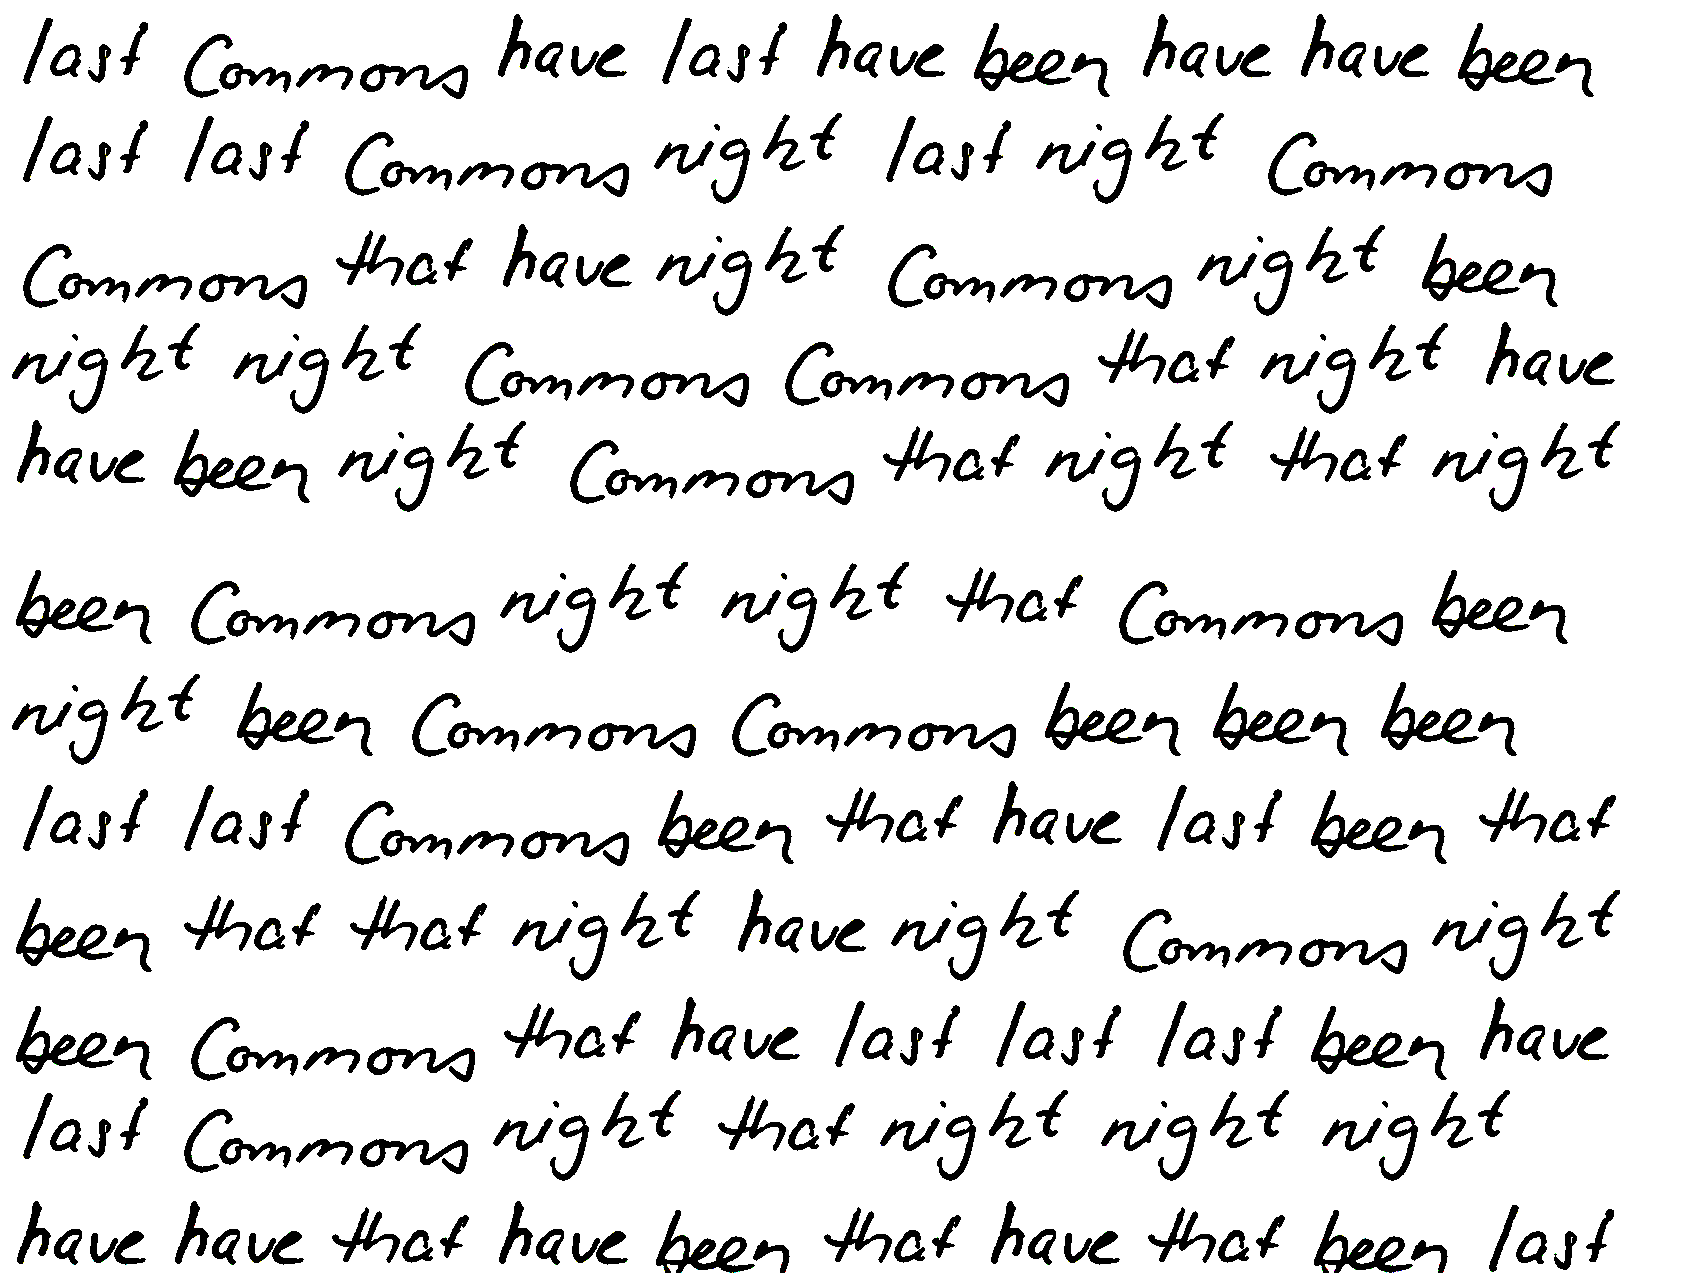 last Commons have last have been have have been
last last Commons night last night Commons
Commons that have night Commons night been
night night Commons Commons that night have
have been night Commons that night that night
been Commons night night that Commons been
night been Commons Commons been been been
last last Commons been that have last been that
been that that night have night Commons night
been Commons that have last last last been have
last Commons night that night night night
have have that have been that have that been last